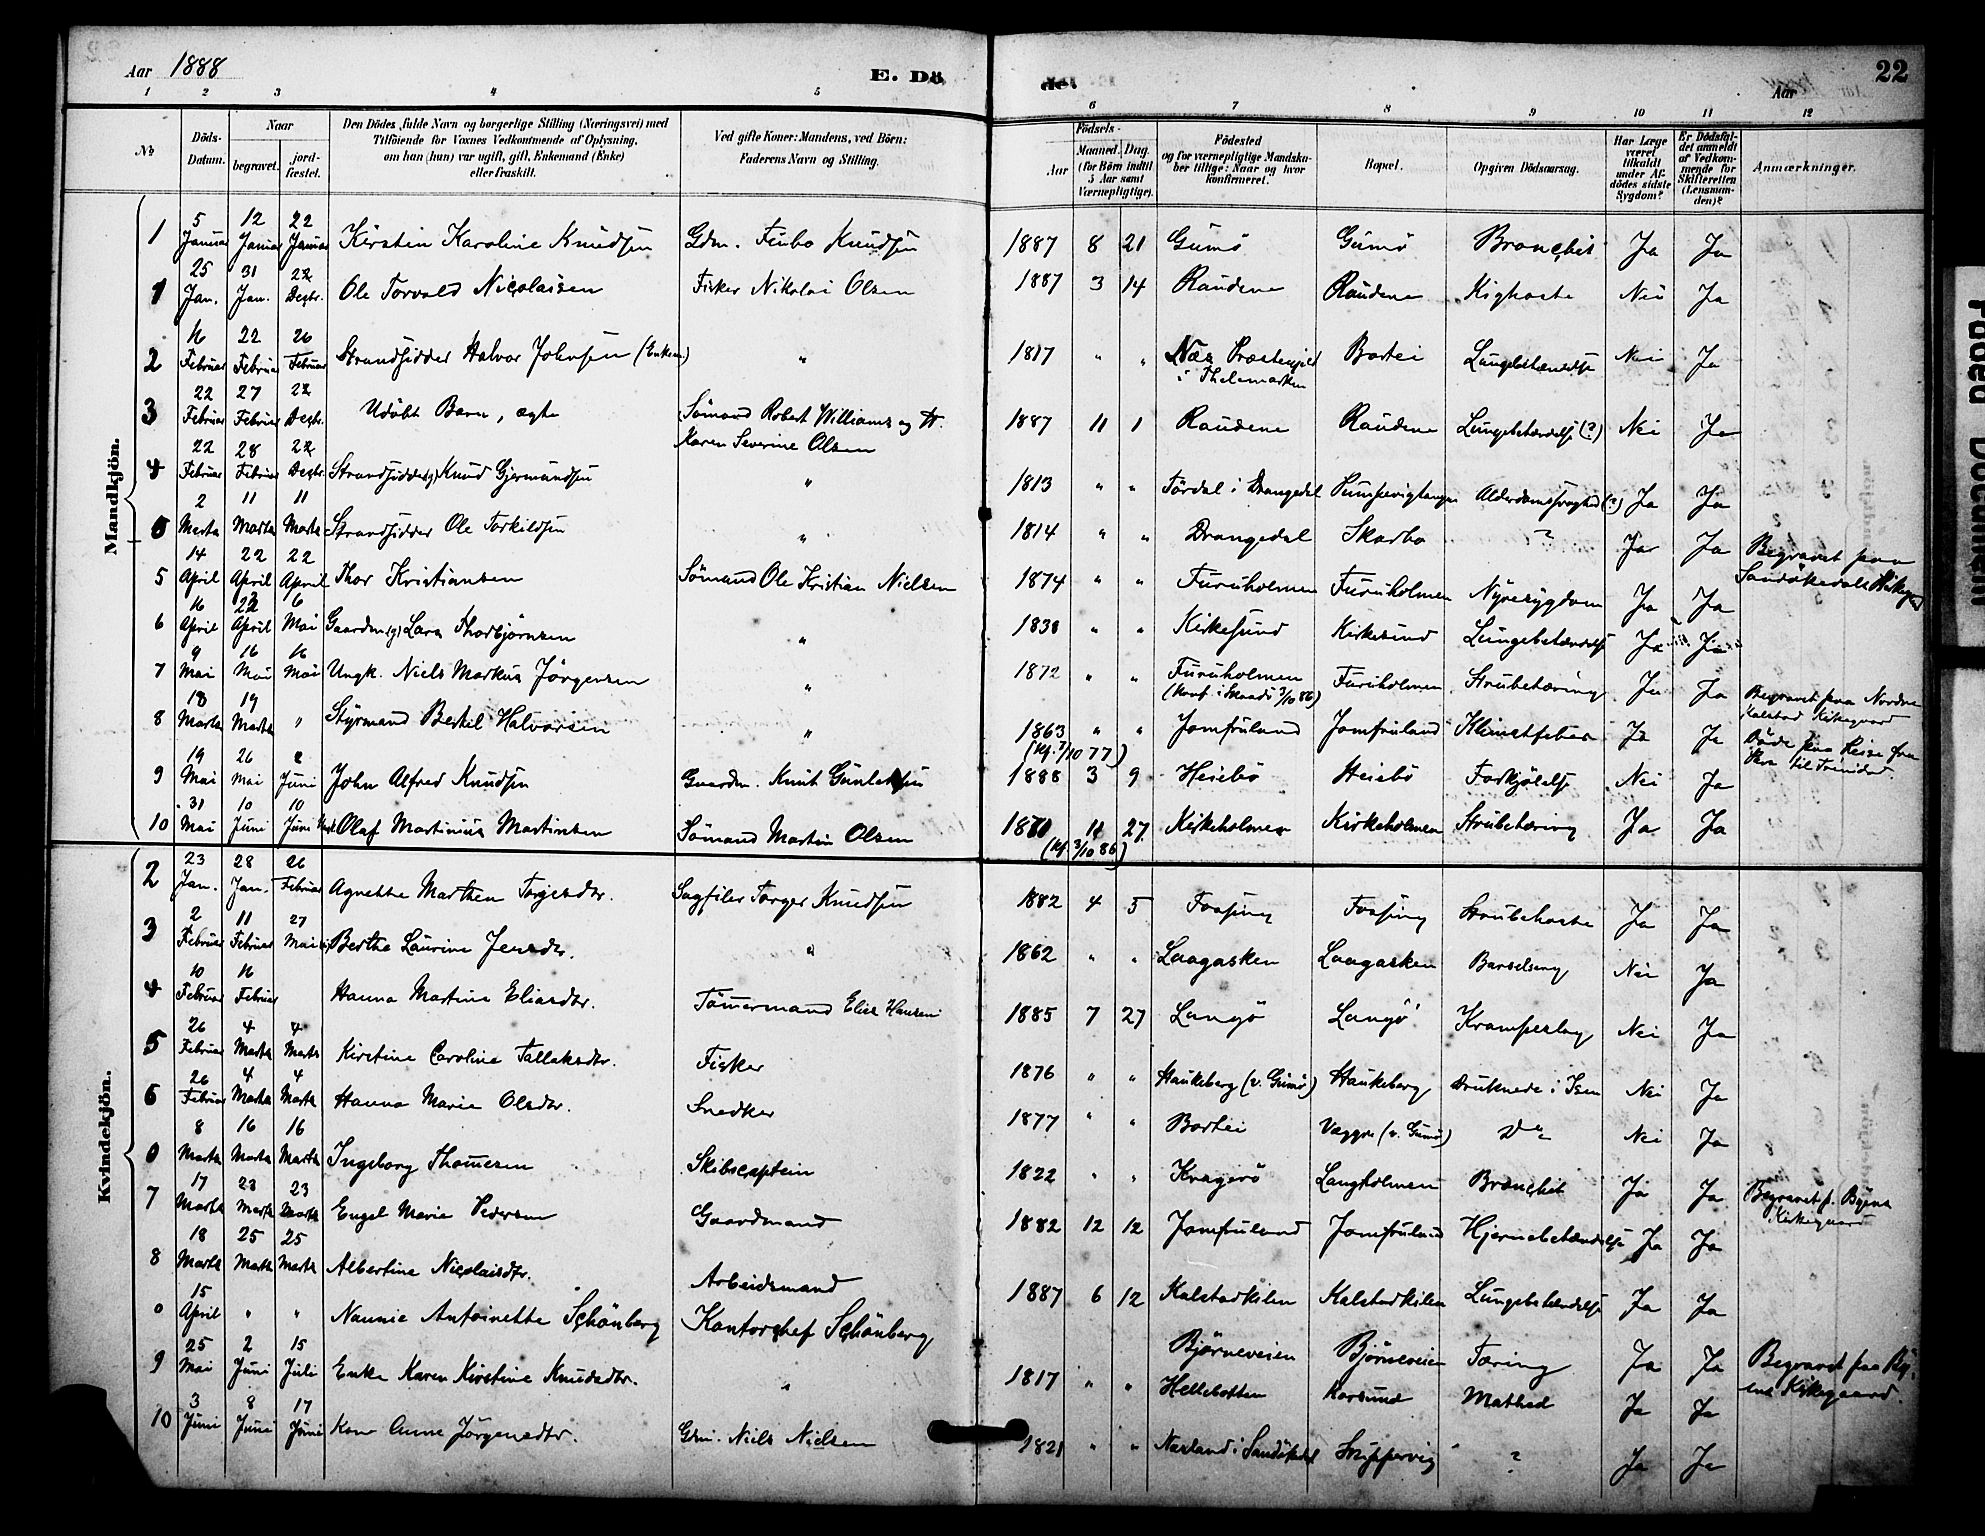 Aar 1888 E. Dö de. Aar 22
1 2 3 4 5 6 7 8 9 10 11 12
No
Döds-Datum.
Naar
begravet.
jord-fæstet.
Den Dödes fulde Navn og borgerlige Stilling (Næringsvei) med
Tilföiende for Voxnes Vedkommende af Oplysning,
om han (hun) var ugift, gift, Enkemand (Enke)
eller fraskilt.
Ved gifte Koner: Mandens, ved Börn:
Faderens Navn og Stilling.
Födsels-
Aar
Maaned. Dag.
(for Börn indtil 5 Aar samt Værnepligtige).
Födested
og for værnepligtige Mandska-
ber tillige: Naar og hvor
konfirmeret.
Bopæl.
Opgiven Dödsaarsag.
Har Læge været tilkaldt under Af-dödes sidste Sygdom?
Er Dödsfal-det anmeldt af Vedkom-mende for Skifteretten (Lensman-den)?
Anmærkninger.
Mandkjön.
1 5 Januar 12 Januar 22 Januar Kirstin Karoline Knudsen Gdm. Knudsen 1887 8 21 Gumö Gumö Bronchit Ja Ja
1 25 Jan. 31 Jan. 22 Decbr. Ole Torvald Nicolaisen Fisker Nikolai Olsen 1887 3 14 Raudene Raudene Kighoste Nei Ja
2 16 Februar 22 Februar 26 Februar Strandsidder Halvor Johnsen (Enkem) " 1817 " " Næs Præstegjeld
i Thelemarken Bartei Lungebetændelse Nei Ja
3 22 Februar 27 Februar 22 Decbr. Udöbt Barn, ægte Sömand Robert Williams og H.
Karen Severine Olsen 1887 11 1 Raudene Raudene Lungebetændelse (?) Nei Ja
4 22 Februar 28 Februar 22 Decbr. Strandsidder(g) Knud Gjermundsen " 1813 " " Tördal i Drangedal Pumpevigtangen Alderdomssvaghed (?) Ja Ja
0 2 Marts 11 Marts 11 Marts Strandsidder Ole Torkildsen " 1814 " " Drangedal Skarbo ? Ja Ja Begravet paa
Sandökedals Kirkegd
5 14 April 22 April 22 April Thor Kristiansen Sömand Ole Kristian Nielsen 1874 " " Furuholmen Furuholmen Nyresygdom Ja Ja
6 16 April 22 April 6 Mai Gaardm(g) Lars Thorbjörnsen " 1838 " " Kirkesund Kirkesund Lungebetændelse Ja Ja
7 9 Mai 16 Mai 16 Mai Ungk. Niels Markus Jörgensen " 1872 " " Furuholmen
(Konf. i Skaadö 3/10 86) Furuholmen Strubetæring Ja Ja
8 18 Marts 19 Marts " Styrmand Bertel Halvorsen " 1863
(Kf. 7/10 77) " " Jomfruland Jomfruland Klimatfeber Ja Ja Begravet paa Nordre
Kalstad Kirkegaard
Döde paa Reise fra
til Trinidad.
9 19 Mai 26 Mai 8 Juni John Alfred Knudsen Gaardm. Knut Guntersen 1888 3 9 Heisebö Heisebö Forkjölelse Nei Ja
10 31 Mai 10 Juni 10 Juni Olaf Martinius Martinsen Sömand Martin Olsen 1871
(Kf. 3/10 86) 11 27 Kirkeholmen Kirkeholmen Strubetæring Ja Ja
Kvindekjön.
2 23 Jan. 28 Jan. 26 Februar Agnethe Marthea Torjesdtr. Sagfiler Torger Knudsen 1882 4 5 Fossing Fossing Strubehoste Ja Ja
3 2 Februar 11 Februar 27 Mai Berthe Laurine Jensdtr. " 1862 " " Laagasken Laagasken Barselseng Nei Ja
4 10 Februar 16 Februar Hanna Martine Eliasdtr. Tömmermand Elias Hansen 1885 7 27 Langö Langö Krampeslag Nei Ja
5 26 Februar 4 Marts 4 Marts Kirstine Caroline Tallaksdtr. Fisker 1876 " " Haukeberg (v. Gumö) Haukeberg Druknede i Isen Nei Ja
6 26 Februar 4 Marts 4 Marts Hanna Marie Olsdtr. Snedker 1877 " " Bartei (v. Gumö) Do Nei Ja
0 8 Marts 16 Marts 16 Marts Ingeborg Thomesen Skibscaptein 1822 " " Kragerö Langholmen Bronchit Ja Ja Begravet p. Byens
Kirkegaard
7 17 Marts 23 Marts 23 Marts Engel Marie Pedersen Gaardmand 1882 12 12 Jomfruland Jomfruland Hjernebetændelse Ja Ja
8 18 Marts 25 Marts 25 Marts Albertine Nicolaisdtr. Arbeidsmand 1887 6 12 Kalstadkilen Kalstadkilen Lungebetændelse Ja Ja
0 15 April " " Nannie Antoinette Schönberg Kontorchef Schönberg Bjørneveien Bjørneveien Tæring Ja Ja Begravet paa By-
ens Kirkegaard.
9 25 Mai 2 Juni 15 Juli Enke Karen Kirstine Knudsdtr. " 1817 " " Hellebotten Korsund Mathed Ja Ja
10 3 Juni 8 Juni 17 Juni Kone Anne Jörgensdtr. Gdm. Niels Nielsen 1821 " " Narland i Sandökedal Skippervig ? Ja Ja
Faded Document